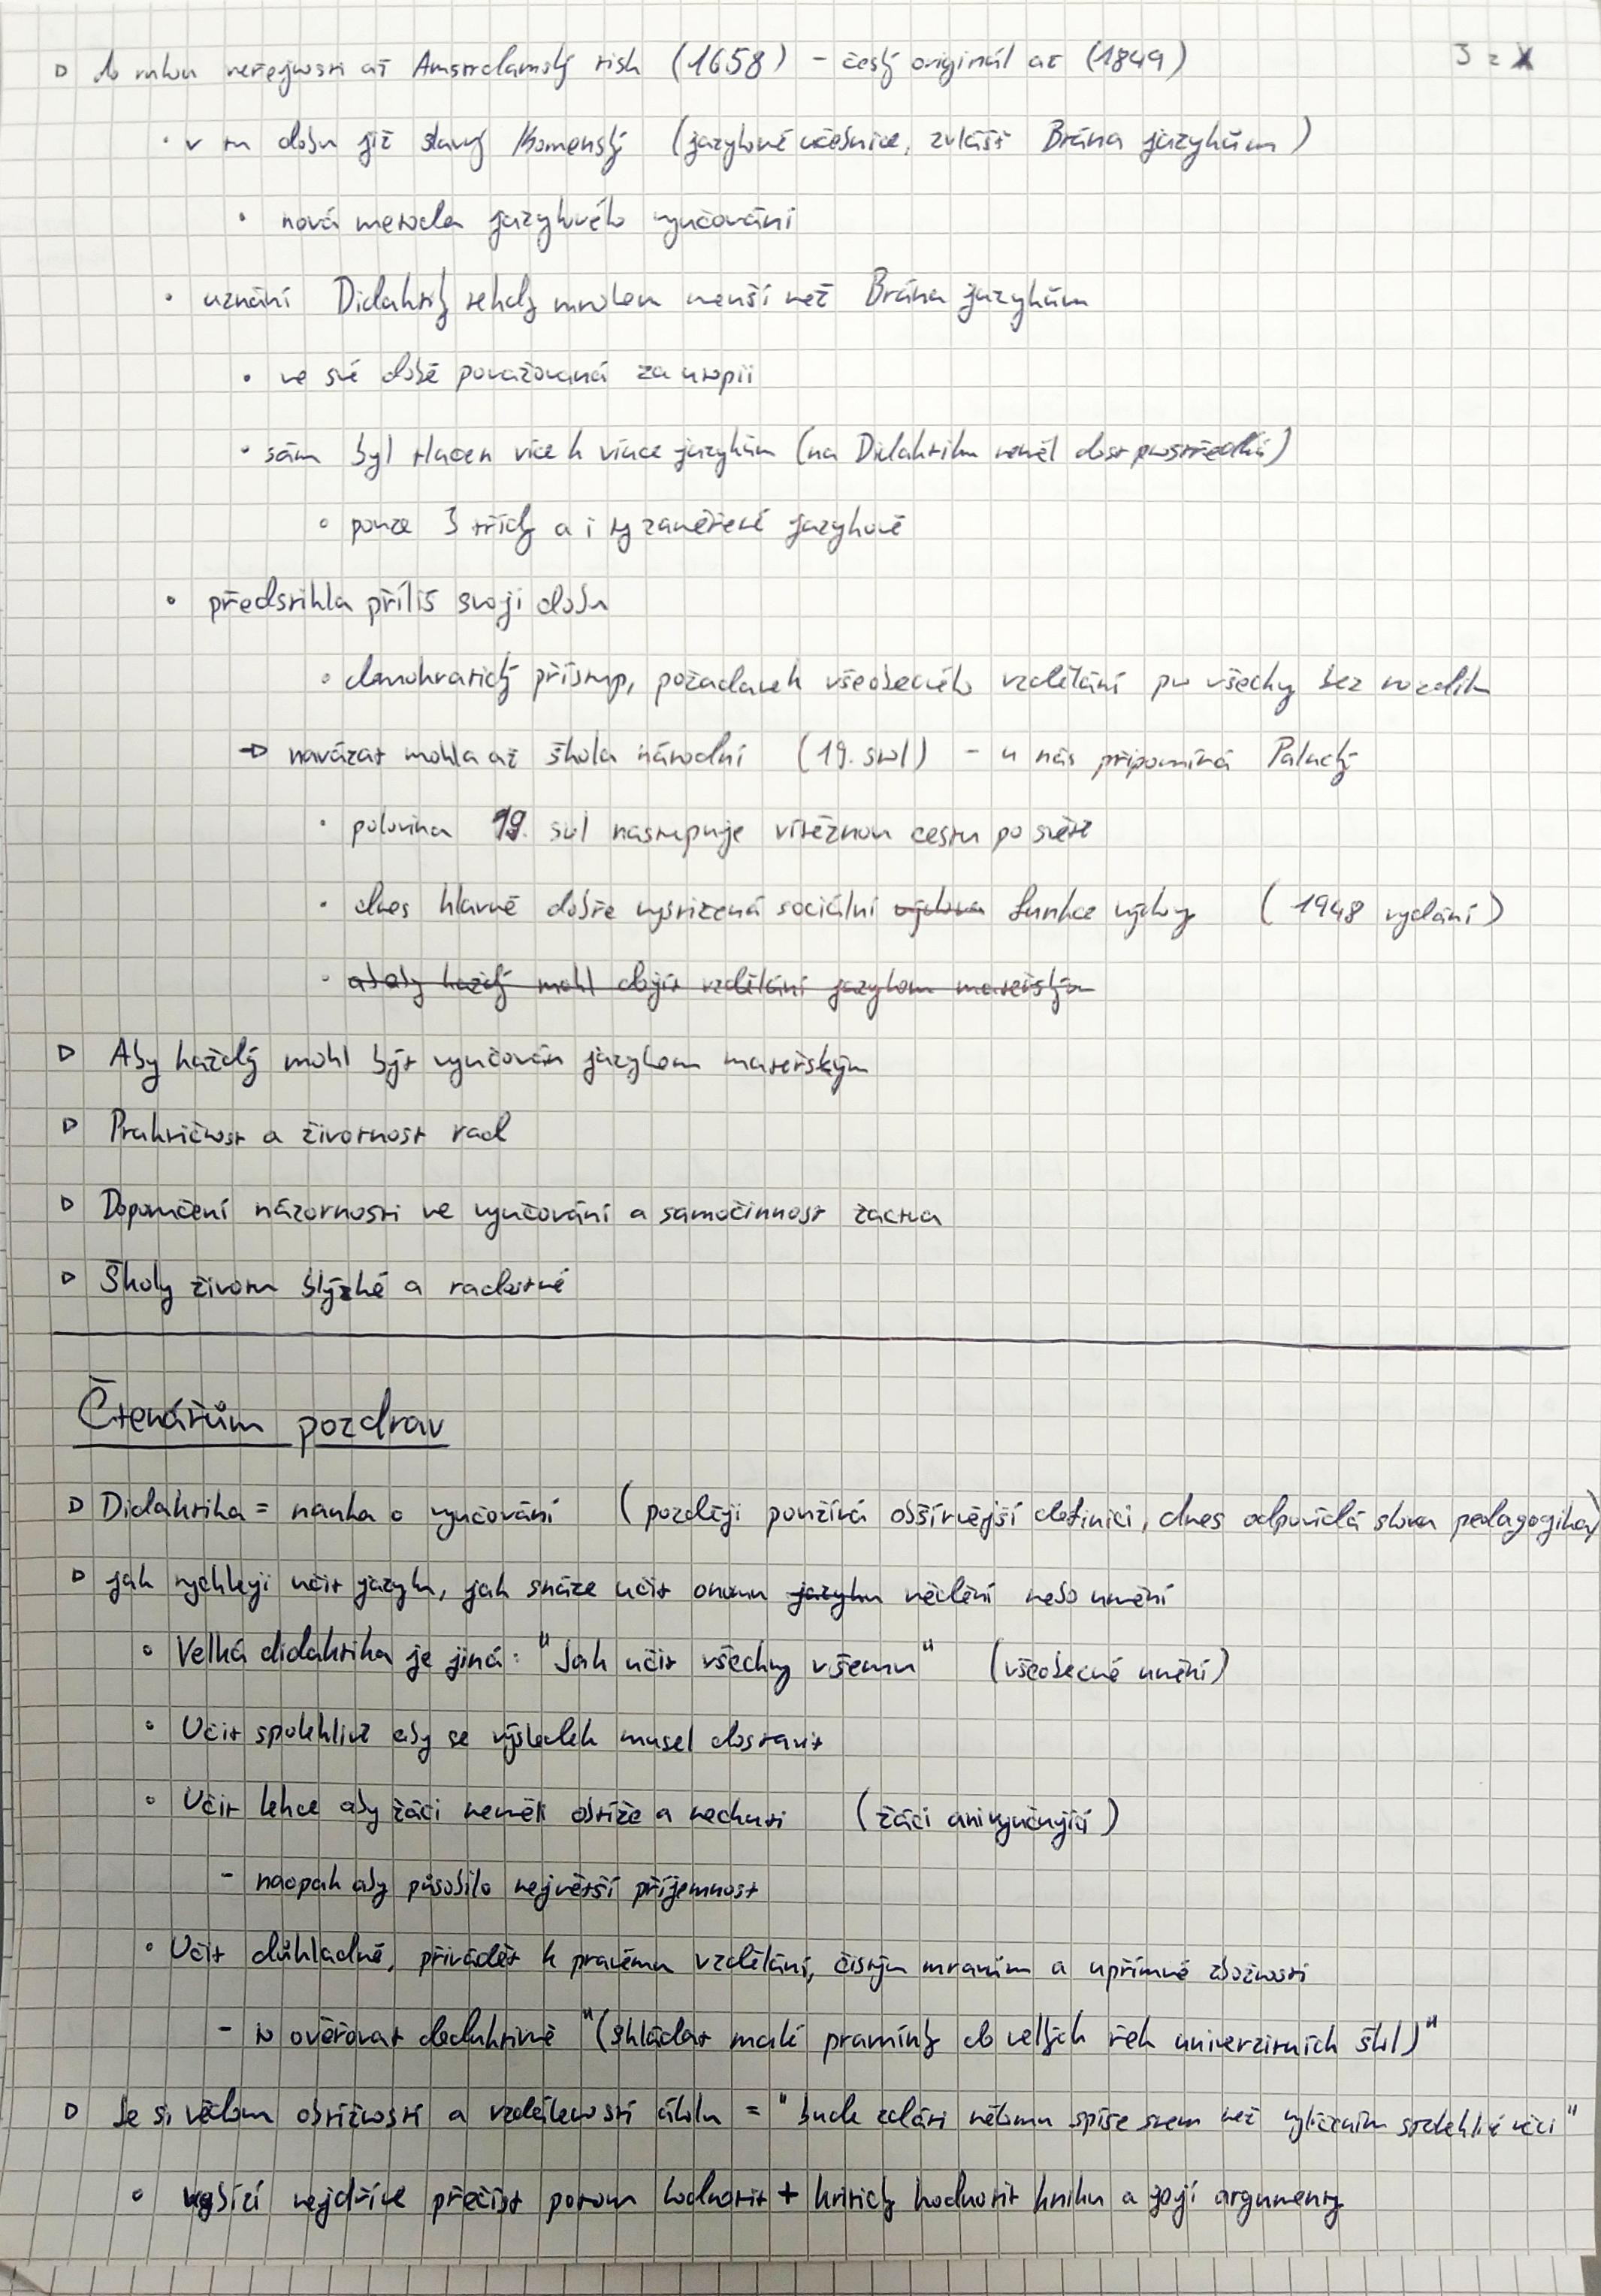 3 z X
▷ do rukou veřejnosti až Amsterdamský tisk (1658) - český originál až (1849)
• v tu dobu již slavný Komenský (jazykové učebnice, zvlášť Brána jazykům)
• nová metoda jazykového vyučování
• uznání Didaktiky tehdy mnohem menší než Brána jazykům
• ve své době považovaná za utopii
• sám byl tlačen více k výuce jazykům (na Didaktiku neměl dost prostředků)
• pouze 3 třídy a i ty zaměřené jazykově
• předstihla příliš svoji dobu
• demokratický přístup, požadavek všeobecného vzdělání pro všechny bez rozdílu
→ navázat mohla až škola národní (19. stol) - u nás připomíná Palacký
• polovina 19. stol nastupuje vítěznou cestu po světě
• dnes hlavně dobře vystižená sociální výchova funkce výchovy (1948 vydání)
• aby každý mohl dojít vzdělání jazykem mateřským
▷ Aby každý mohl být vyučován jazykem mateřským
▷ Praktičnost a životnost rad
▷ Doporučení názornosti ve vyučování a samočinnost žactva
▷ Školy životu blýzké a radostné
Čtenářům pozdrav
▷ Didaktika = nauka o vyučování (později používá obšírnější definici, dnes odpovídá slovu pedagogika)
▷ jak rychleji učit jazyku, jak snáze učit onomu jazyku vědění nebo umění
• Velká didaktika je jiná: "Jak učit všechny všemu" (všeobecné umění)
• Učit spolehlivě aby se výsledek musel dostavit
• Učit lehce aby žáci neměli obtíže a nechuti (žáci ani vyučující)
- naopak aby působilo největší příjemnost
• Učit důkladně, přivádět k pravému vzdělání, čistým mravům a upřímné zbožnosti
- to ověřovat deduktivně "(skládat malé pramínky do velkých řek univerzitních škol)"
▷ Je si vědom obtížnosti a vzdálenosti úkolu = "bude zdáti někomu spíše snem než vylíčením spolehlivé věci"
• vybízí nejdříve přečíst potom hodnotit + kriticky hodnotit knihu a její argumenty